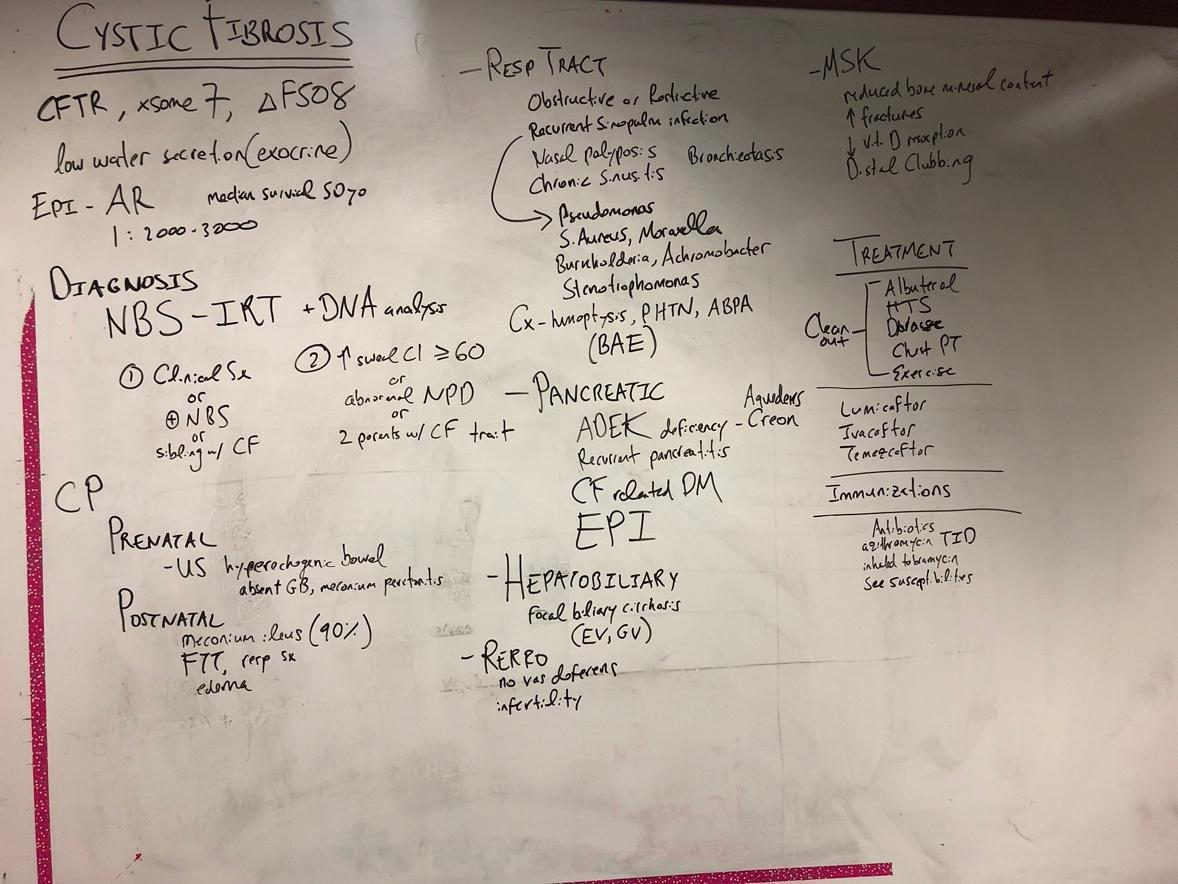 CYSTIC FIBROSIS
CFTR, xsome 7, ΔF508
low water secretion (exocrine)
EPI - AR median survival 50yo
1 : 2000-3000
DIAGNOSIS
NBS - IRT + DNA analysis
① Clinical Sx
or
⊕ NBS
or
sibling w/ CF
② ↑ sweat Cl ≥ 60
or
abnormal NPD
or
2 parents w/ CF trait
CP
PRENATAL
- US hyperechogenic bowel
absent GB, meconium peritonitis
POSTNATAL
meconium ileus (90%)
FTT, resp sx
edema
- RESP TRACT
Obstructive or Restrictive
Recurrent Sinopulm infection
Nasal polyposis Bronchiectasis
Chronic Sinusitis
Pseudomonas
S. Aureus, Moraxella
Burkholderia, Achromobacter
Stenotrophomonas
Cx - hemoptysis, PHTN, ABPA
(BAE)
- PANCREATIC
ADEK deficiency - Aquadeks
Creon
Recurrent pancreatitis
CF related DM
EPI
- HEPATOBILIARY
Focal biliary cirrhosis
(EV, GV)
- REPRO
no vas deferens
infertility
- MSK
reduced bone mineral content
↑ fractures
↓ Vit. D absorption
Distal Clubbing
TREATMENT
Clean out
Albuterol
HTS
Dornase
Chest PT
Exercise
Lumicaftor
Ivacaftor
Temezcaftor
Immunizations
Antibiotics
azithromycin TID
inhaled tobramycin
See susceptibilities